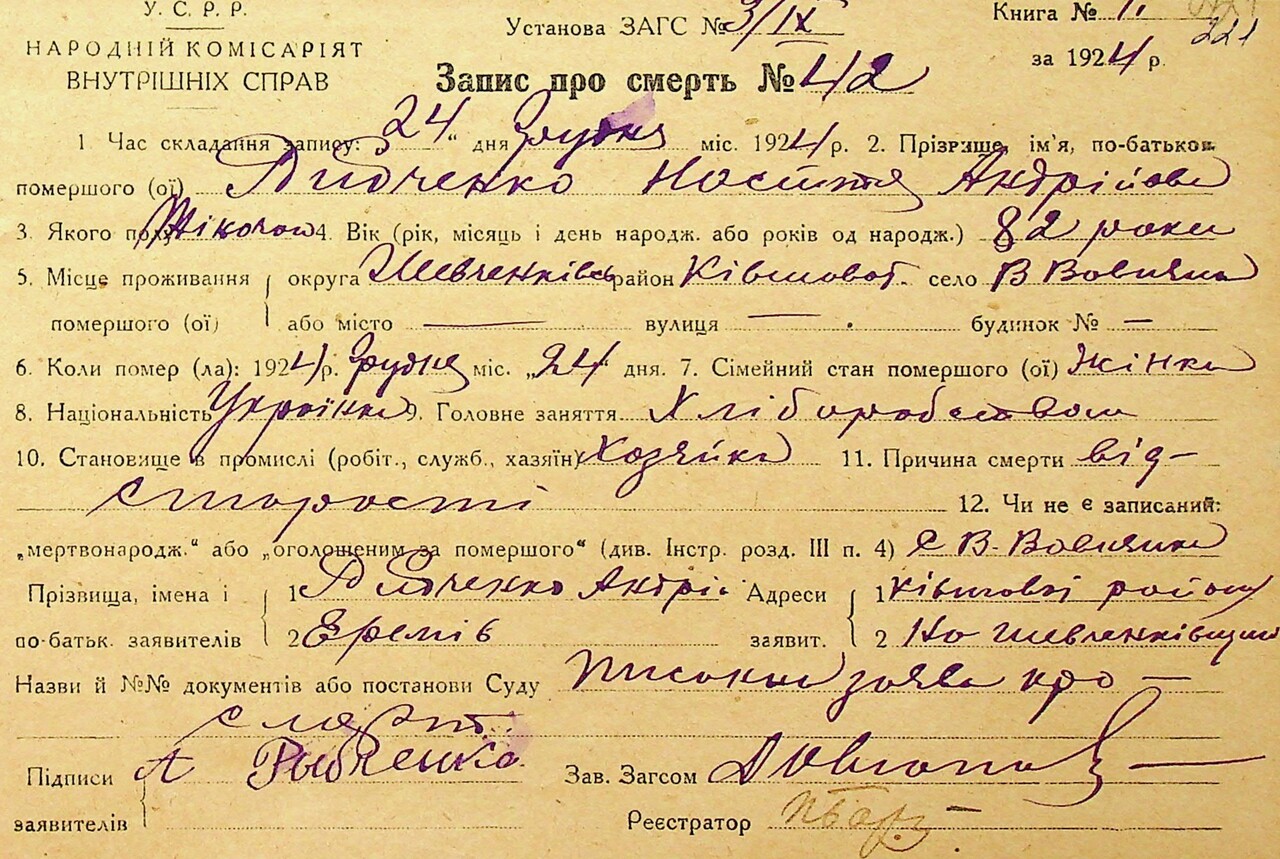 У. С. Р. Р.
НАРОДНІЙ КОМІСАРІЯТ
ВНУТРІШНІХ СПРАВ
Установа ЗАГС № 3/IX
Книга № 1.
221
за 1924 р.
Запис про смерть № 42
1 Час складання запису: „24“ дня Грудня міс. 1924 р. 2. Прізвище, ім'я, по-батькови
помершого (ої) Рибченко Настя Андрійова
3. Якого полу Жіночого 4. Вік (рік, місяць і день народж. або років од народж.) 82 роки
5. Місце проживання округа Шевченківсь район село В Вовнянка
помершого (ої) або місто — вулиця — . будинок № —
6. Коли помер (ла): 1924 р. Грудня міс. „24“ дня. 7. Сімейний стан помершого (ої) Жінка
8. Національність Українка 9. Головне заняття Хліборобством
10. Становище в промислі (робіт., служб., хазяїн) Хозяйка 11. Причина смерти від-
старості 12. Чи не є записаний:
„мертвонародж.“ або „оголошеним за помершого“ (див. Інстр. розд. III п. 4) С В. Вовнянка
Прізвища, імена і 1 Рибченко Андрій Адреси 1 району
по-батьк. заявителів 2 Єремів заявит. 2 На Шевченківщині
Назви й №№ документів або постанови Суду заява про —
смерть
Підписи А Рыбченко Зав. Загсом
заявителів Реєстратор